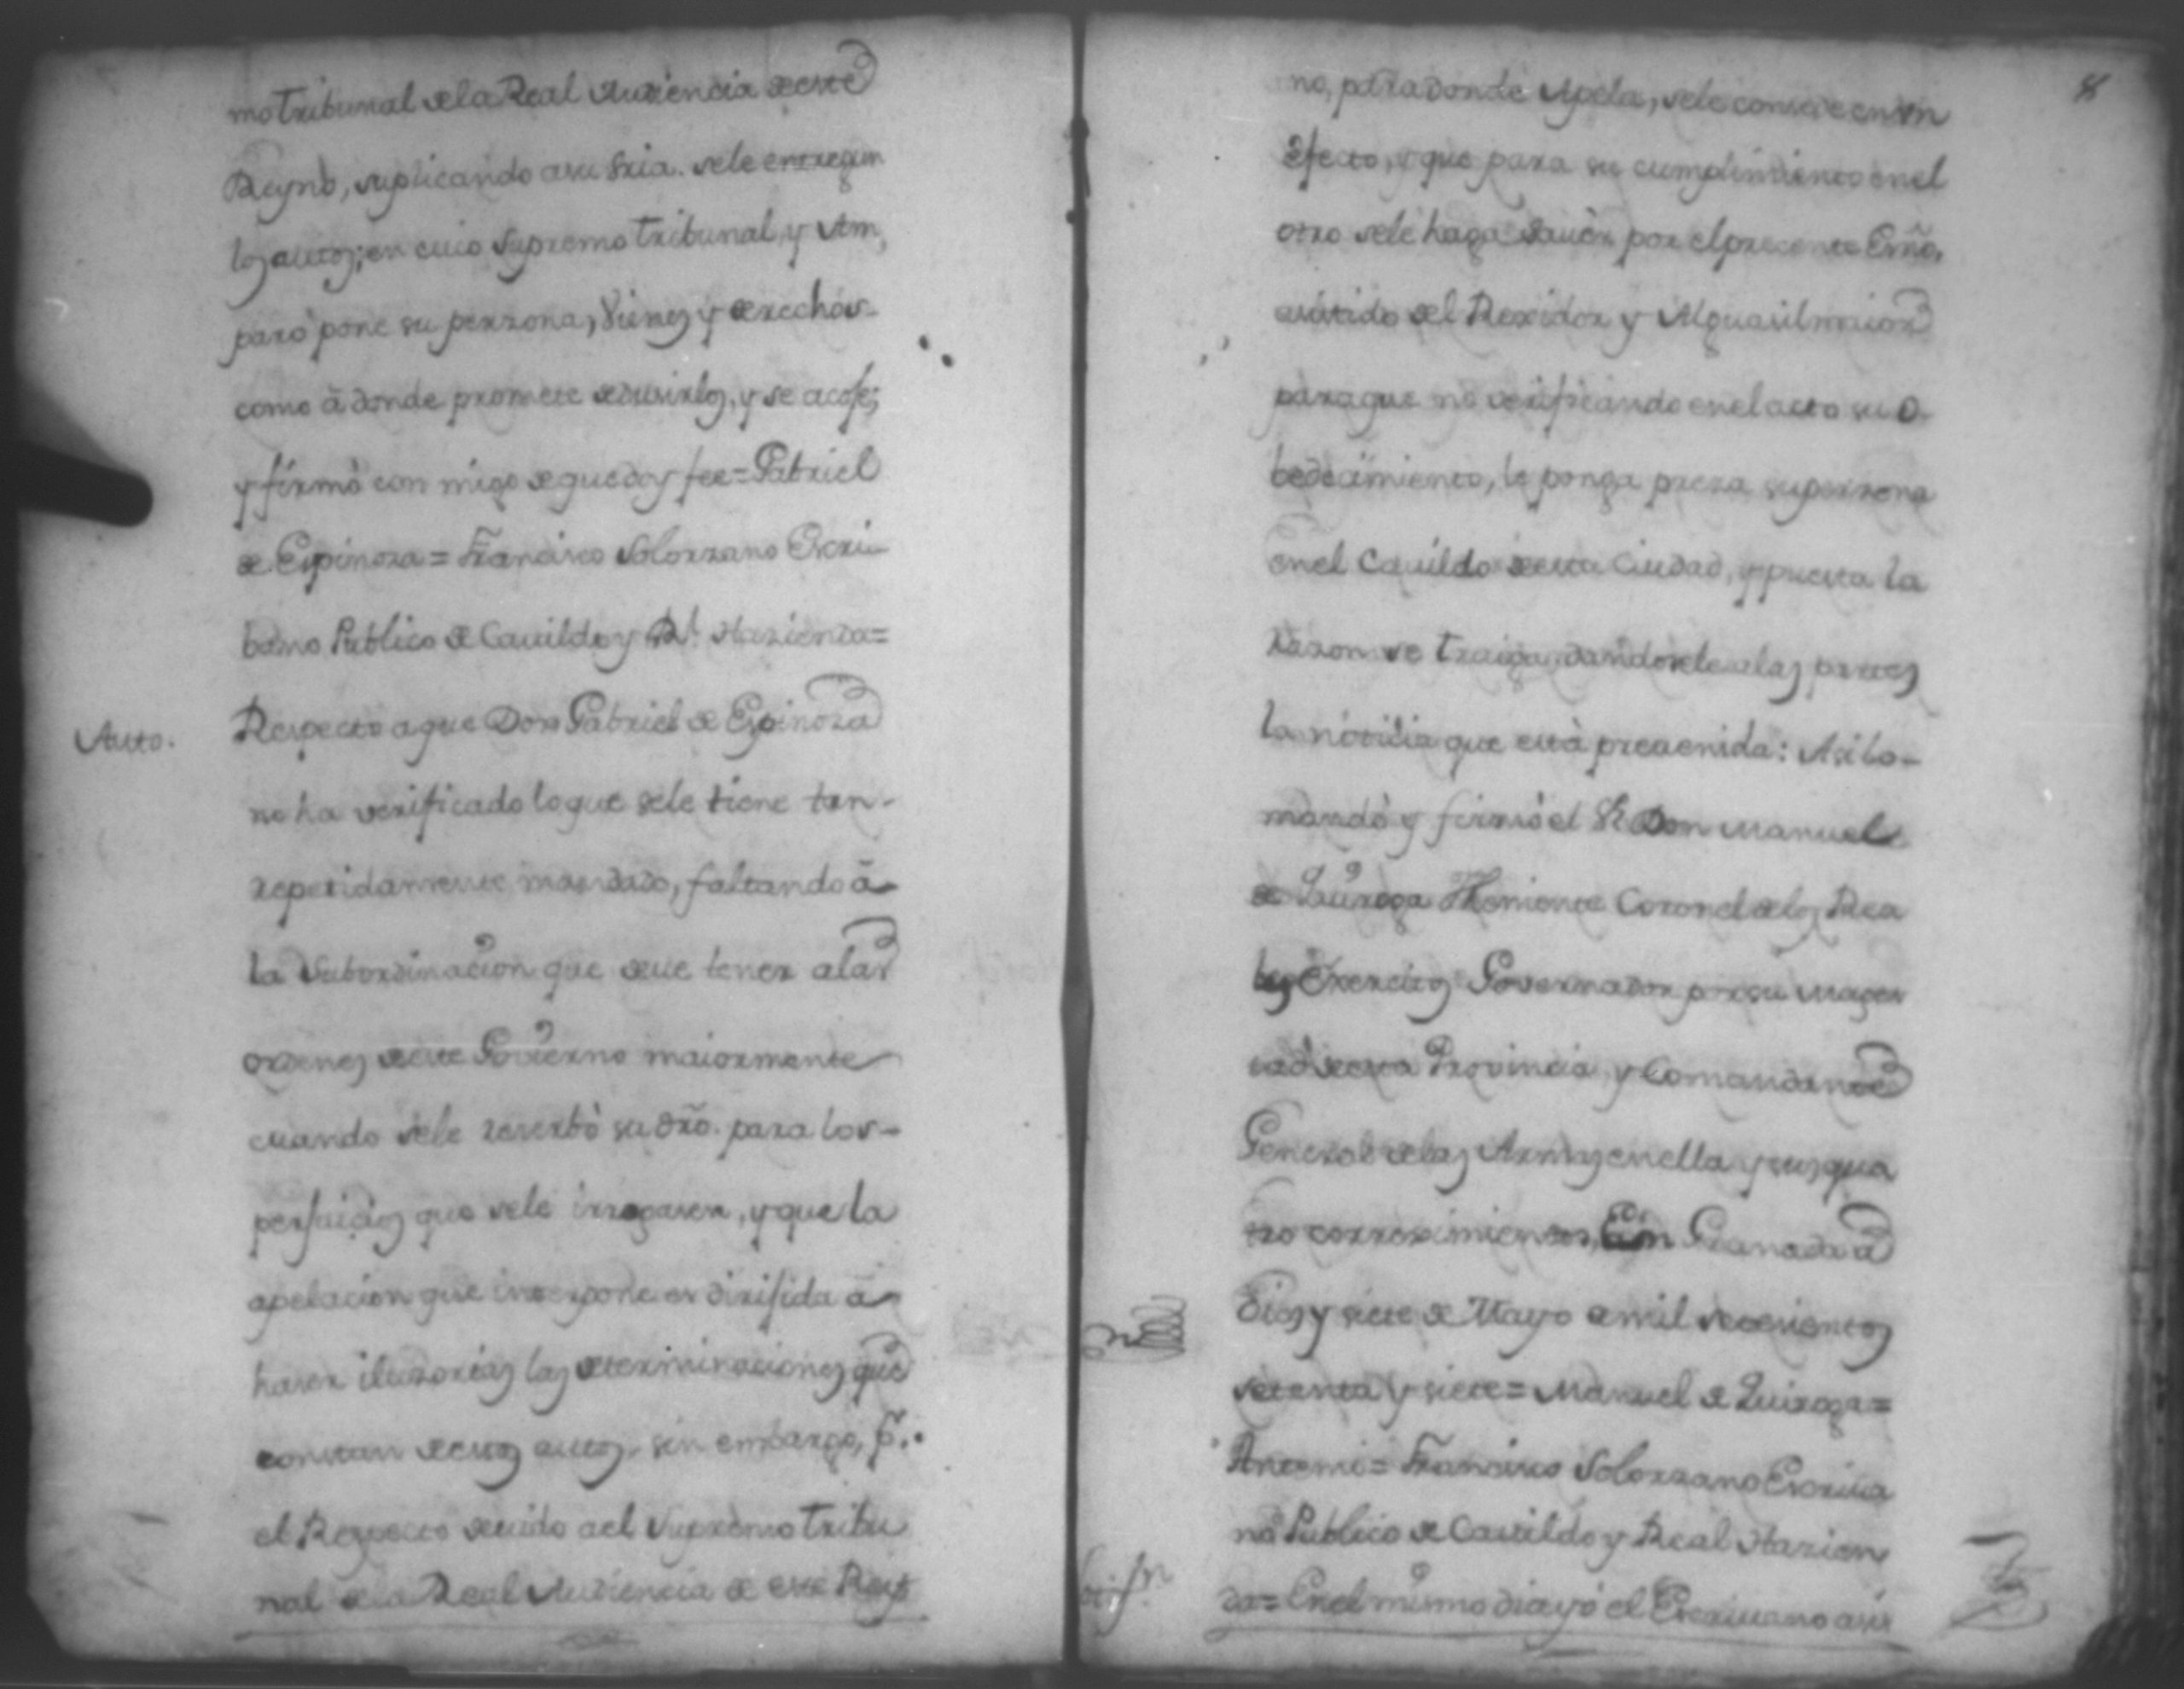 mo tribunal de la Real Audiencia de este
Reyno, suplicando a su sria. se le entregen
los autos; en cuio supremo tribunal, y Am,
paro pone su perzona, vienes y derechos
como à donde promete dedusirlos, y se acoje;
y firmò con migo de que doy fee = Gabriel
de Espinoza = Francisco Solorzano Escri-
bano Publico de Cauildo y Rl. Hazienda =
Auto. Respecto a que Don Gabriel de Espinoza
no ha verificado lo que se le tiene tan-
repetidamente mandado, faltando à
la subordinacion que deue tener a las
ordenes de este Govierno maiormente
cuando se le reserbò su dro. para los-
perjuicios que se le irrogasen, y que la
apelacion que interpone es dirijida à
haser iluzorias las determinaciones que
constan de estos autos, sin embargo, p.
el Respecto deuido a el Supremo Tribu
nal de la Real Audiencia de este Rey
8
no, para donde Apela, se le consede en un
efecto, y que para su cumplimiento en el
otro se le haga sauèr por el precente Esño.
asistido del Rexidor y Alguasil maior
para que no verificando en el acto su o
bedecimiento, le ponga preza su perzona
en el Cauildo de esta Ciudad, y puesta la
razon se traiga, dandosele a las partes
la noticia que està preuenida: Asi lo-
mandò y firmò el Sr. Don Manuel
de Quiroga Theniente Coronel de los Rea
les Exercitos Governador por su Mages
tad de esta Provincia, y Comandante
General de las Armas en ella y sus qua
tro correximientos, En Granada a
dies y siete de Mayo de mil setesientos
setenta y siete = Manuel de Quiroga =
Antemi = Francisco Solorzano Escriua
no Publico de Cauildo y Real Hazien
da = En el mismo dia yo el Escriuano asis